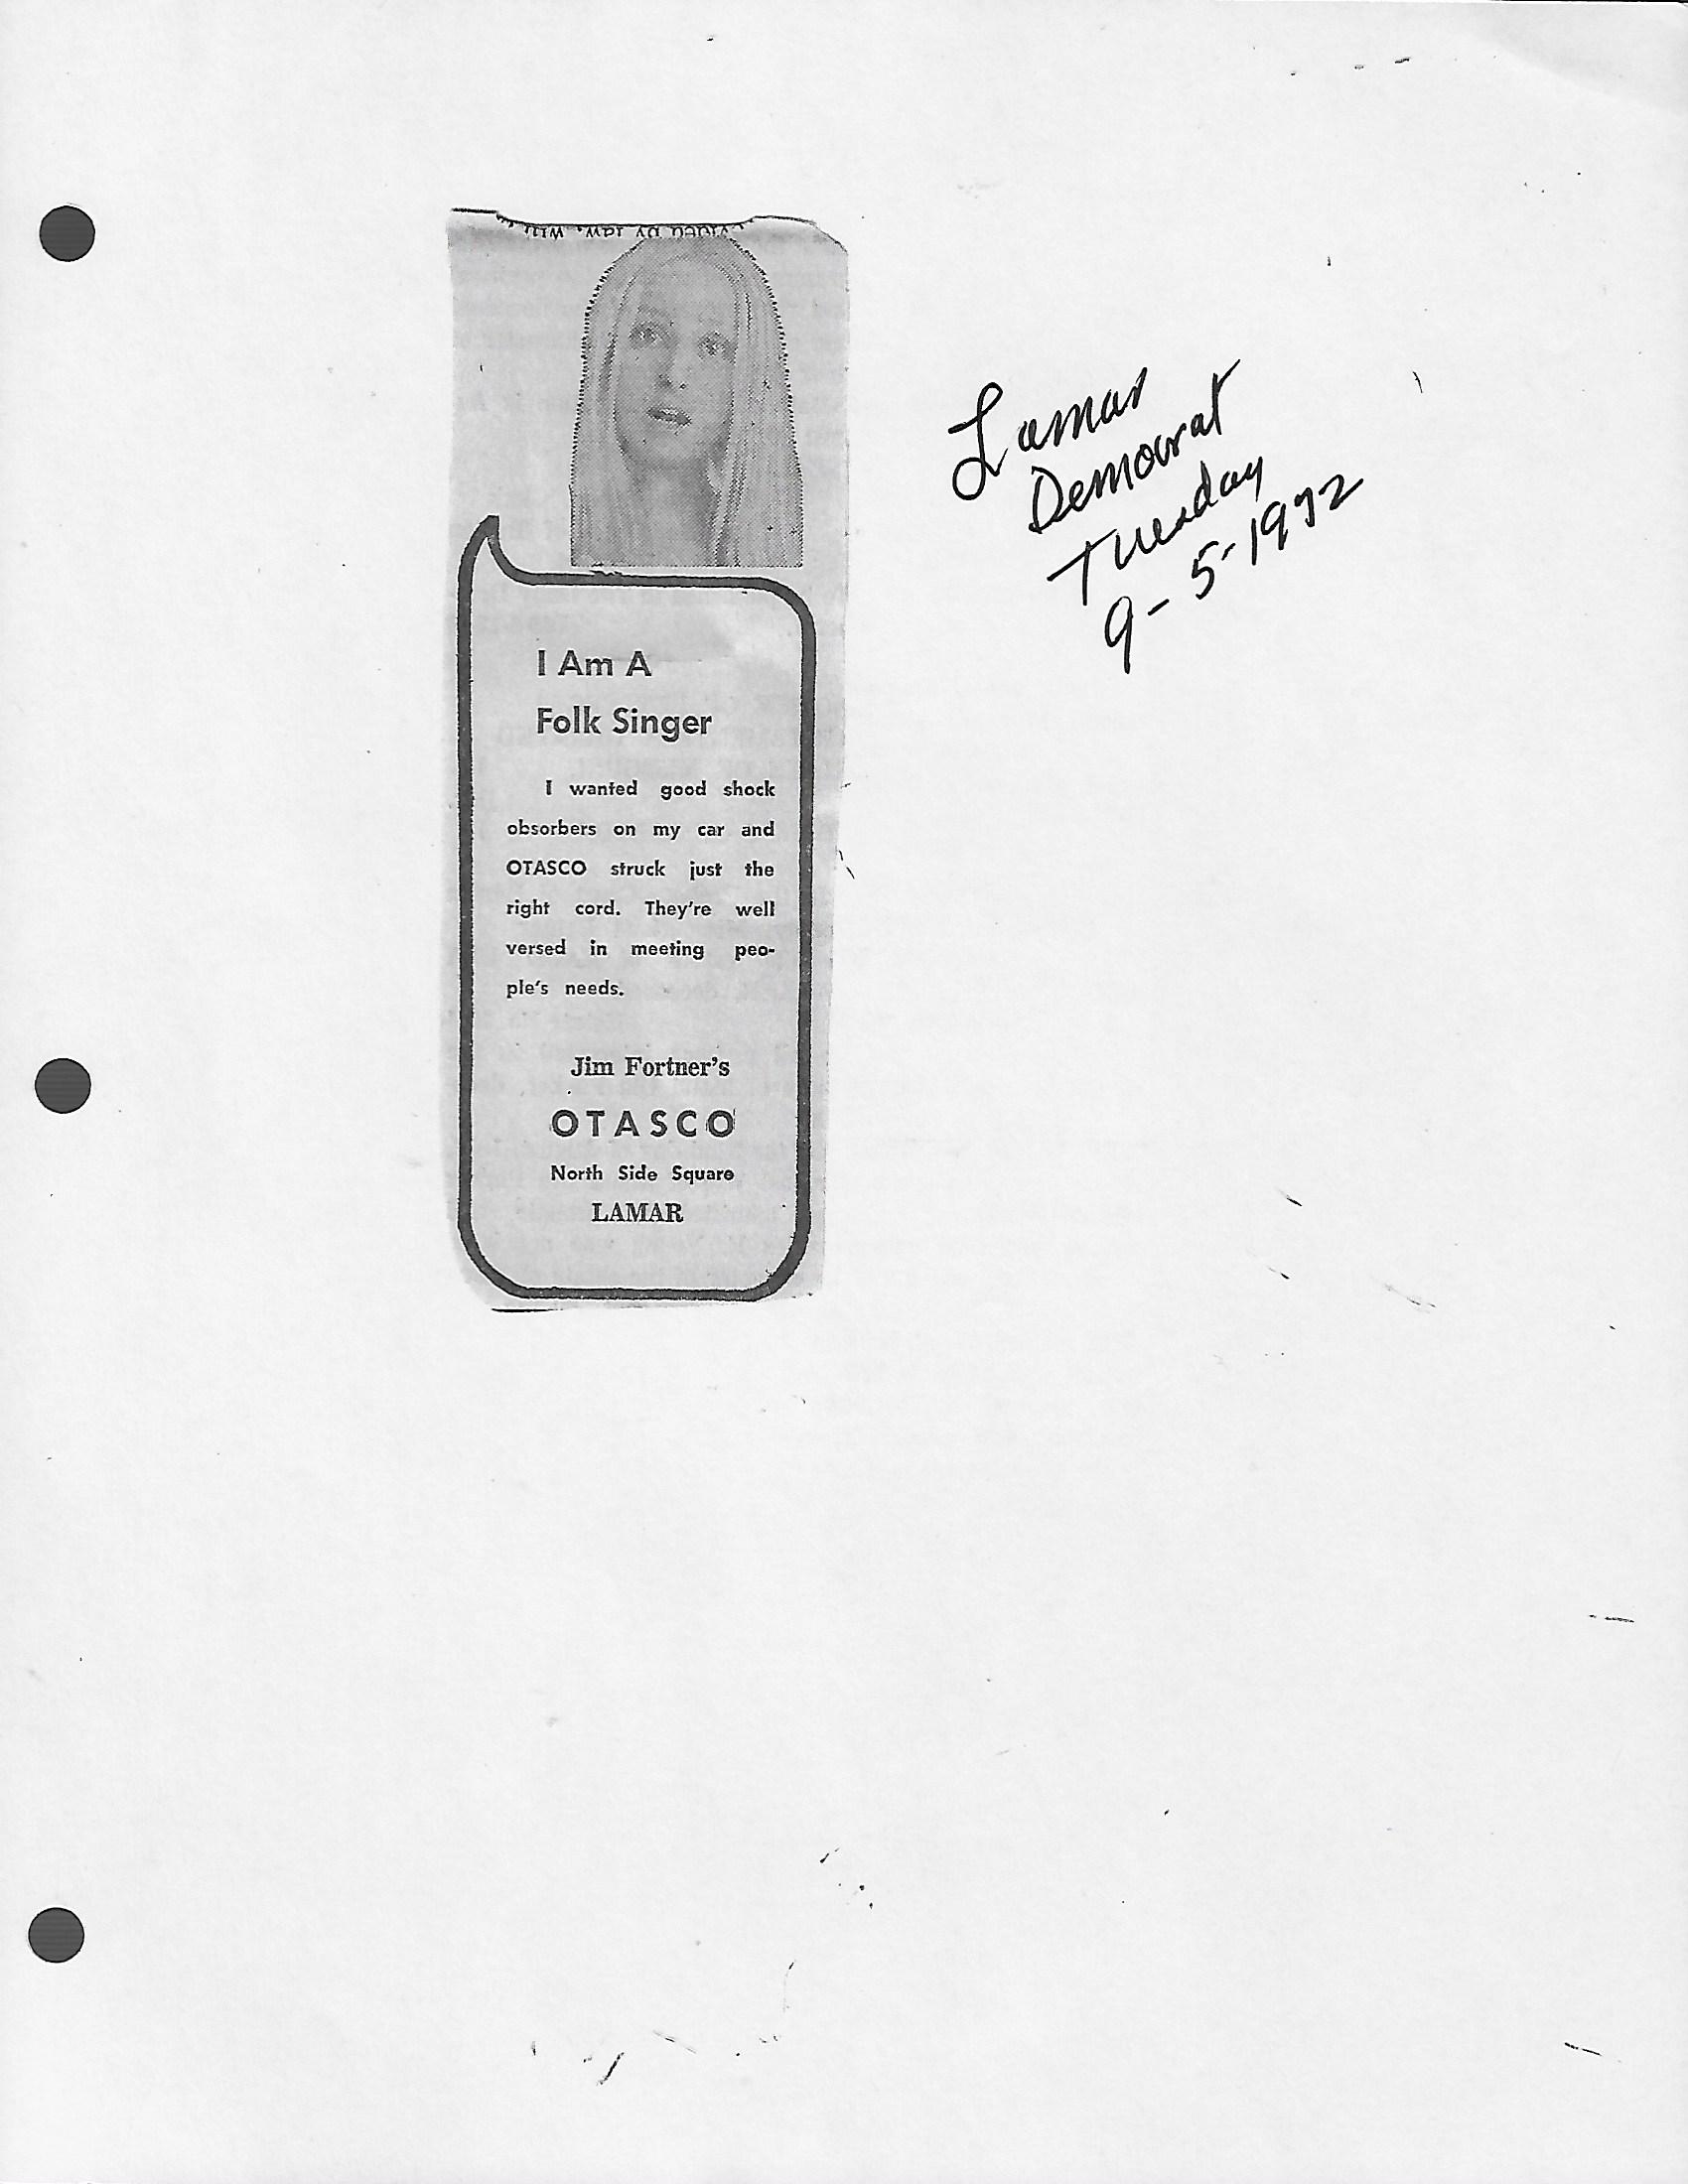 I Am A
Folk Singer
I wanted good shock
obsorbers on my car and
OTASCO struck just the
right cord. They're well
versed in meeting peo-
ple's needs.
Jim Fortner's
OTASCO
North Side Square
LAMAR
Lamar
Democrat
Tuesday
9-5-1972